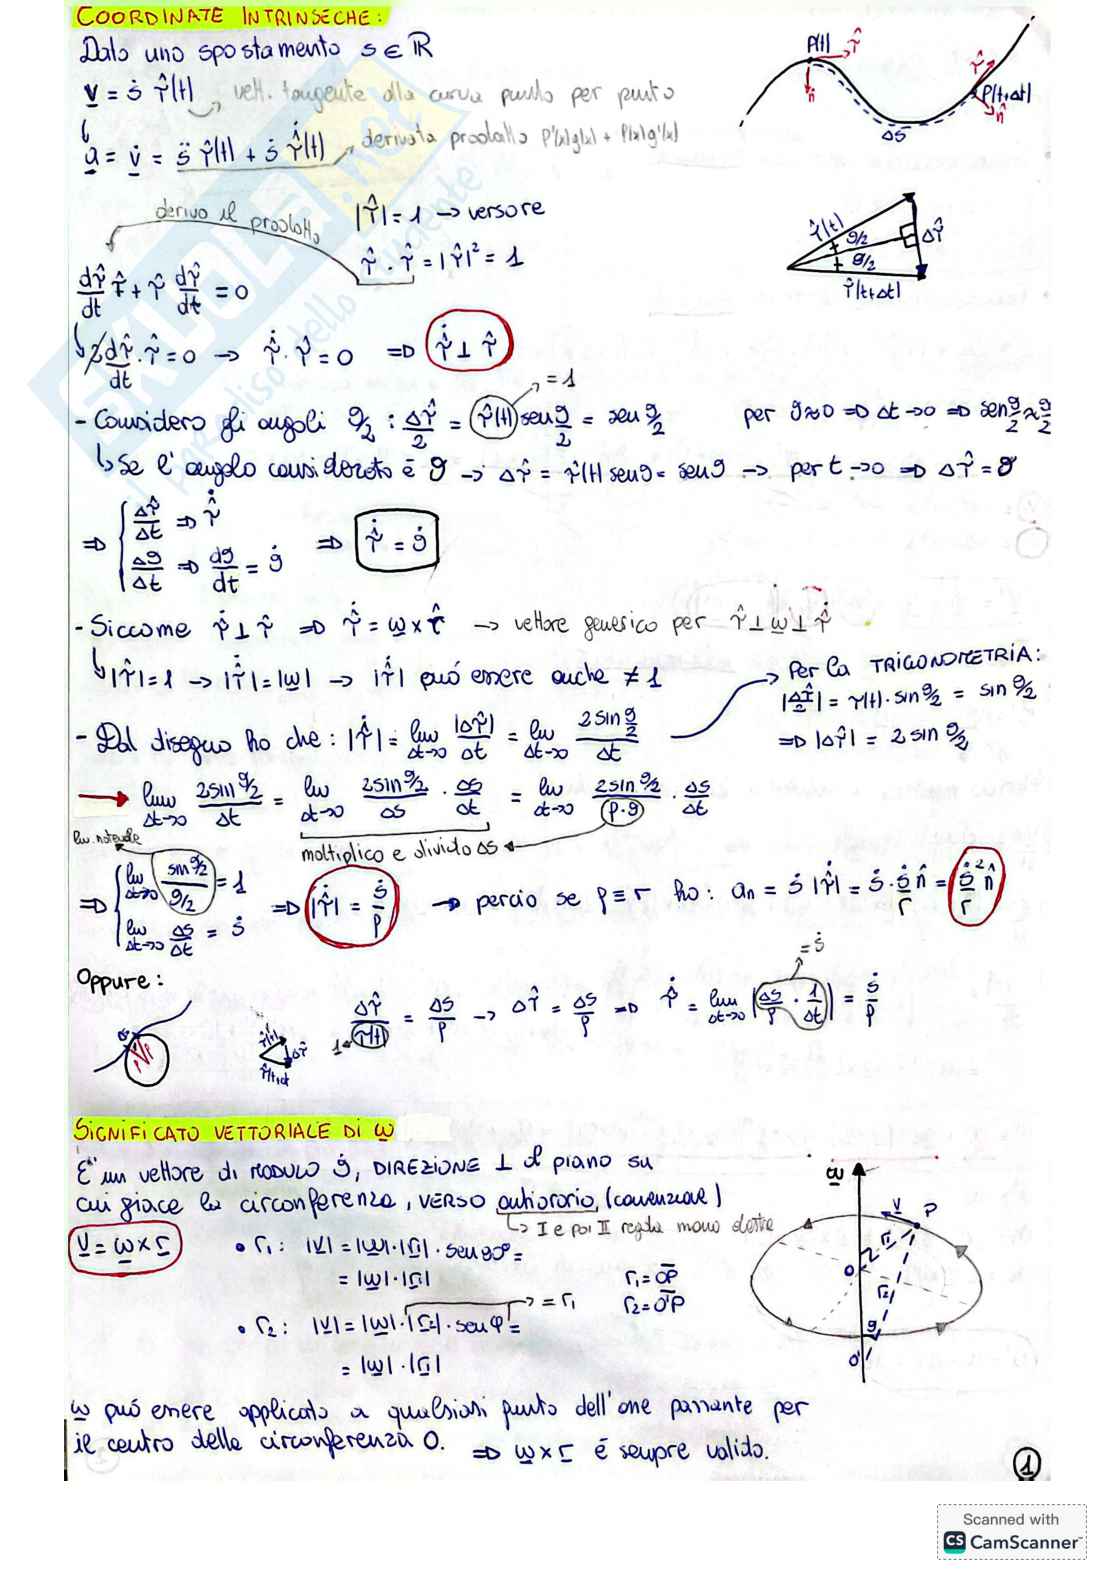 COORDINATE INTRINSECHE:
Dato uno spostamento s ∈ ℝ
v = ṡ τ̂(t) vett. tangente alla curva punto per punto
a = v̇ = s̈ τ̂(t) + ṡ τ̂̇(t) derivata prodotto f'(x)g(x) + f(x)g'(x)
P(t) τ̂ n̂ τ̂ P(t+Δt) n̂ ΔS
derivo il prodotto |τ̂| = 1 → versore
τ̂ · τ̂ = |τ̂|² = 1
dτ̂/dt τ̂ + τ̂ dτ̂/dt = 0
τ̂(t) θ/2 θ/2 Δτ̂ τ̂(t+Δt)
2 dτ̂/dt · τ̂ = 0 → τ̂̇ · τ̂ = 0 ⇒ τ̂̇ ⊥ τ̂
= 1
- Considero gli angoli θ/2 : Δτ̂/2 = τ̂(t) sen θ/2 = sen θ/2 per θ≈0 ⇒ Δt→0 ⇒ sen θ/2 ≈ θ/2
↳ Se l'angolo considerato è θ → Δτ̂ = τ̂(t) senθ = senθ → per t→0 ⇒ Δτ̂ = θ
⇒ { Δτ̂/Δt ⇒ τ̂̇
Δθ/Δt ⇒ dθ/dt = θ̇ ⇒ τ̂̇ = θ̇
- Siccome τ̂̇ ⊥ τ̂ ⇒ τ̂̇ = ω × τ̂ → vettore generico per τ̂ ⊥ ω ⊥ τ̂̇
↳ |τ̂| = 1 → |τ̂̇| = |ω| → |τ̂̇| può essere anche ≠ 1
Per la TRIGONOMETRIA:
|Δτ̂/2| = τ(t) · sin θ/2 = sin θ/2
⇒ |Δτ̂| = 2 sin θ/2
- Dal disegno ho che: |τ̂̇| = lim Δt→0 |Δτ̂|/Δt = lim Δt→0 2 sin θ/2 / Δt
→ lim Δt→0 2sin θ/2 / Δt = lim Δt→0 2sin θ/2 / ΔS · ΔS/Δt = lim Δt→0 2sin θ/2 / (ρ·θ) · ΔS/Δt
lim. notevole moltiplico e divido ΔS
⇒ { lim Δt→0 sin θ/2 / θ/2 = 1
lim Δt→0 ΔS/Δt = ṡ ⇒ |τ̂̇| = ṡ/ρ → perciò se ρ ≡ r ho: an = ṡ |τ̂̇| = ṡ · ṡ/r n̂ = ṡ²/r n̂
Oppure:
Δτ̂/τ(t) = ΔS/ρ → Δτ̂ = ΔS/ρ ⇒ τ̂̇ = lim Δt→0 |ΔS/ρ · 1/Δt| = ṡ/ρ
1 = ṡ
τ̂(t) Δτ̂ τ̂(t+Δt)
SIGNIFICATO VETTORIALE DI ω
E' un vettore di MODULO θ̇, DIREZIONE ⊥ al piano su
cui giace la circonferenza, VERSO antiorario, (convenzione)
↳ I e poi II regola mano destra
v = ω × r • r₁: |v| = |ω| · |r₁| · sen90° =
= |ω| · |r₁|
r₁ = OP
r₂ = O'P
• r₂: |v| = |ω| · |r₂| · senφ = = r₁
= |ω| · |r₁|
ω v P r₁ O r₂ θ O'
ω può essere applicato a qualsiasi punto dell'asse passante per
il centro della circonferenza O. ⇒ ω × r è sempre valido.
1
Scanned with
CS CamScanner